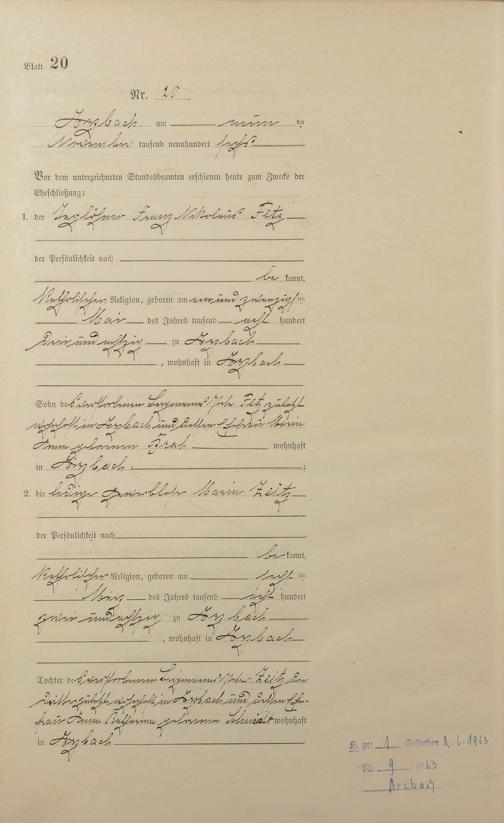 Blatt 20
Nr. 20
Arzbach am neun ten
November tausend neunhundert sechs
Vor dem unterzeichneten Standesbeamten erschienen heute zum Zwecke der
Eheschließung:
1. der Taglöhner Franz Nikolaus
der Persönlichkeit nach
be kannt,
katholischer Religion, geboren am ein und zwanzigsten
Mai des Jahres tausend acht hundert
drei und achtzig zu Arzbach
, wohnhaft in Arzbach
Sohn des verstorbenen Bergmanns zuletzt
wohnhaft in Arzbach und dessen Ehefrau Maria
Anna geborenen wohnhaft
in Arzbach ;
2. die ledige gewerblose Maria Zeitz
der Persönlichkeit nach
be kannt,
katholischer Religion, geboren am sechs ten
März des Jahres tausend acht hundert
zwei und achtzig zu Arzbach
, wohnhaft in Arzbach
Tochter des verstorbenen Bergmanns Zeitz der
dritte zuletzt wohnhaft in Arzbach und dessen Ehe-
frau Anna Katharina geborenen Schmidt wohnhaft
in Arzbach
zu: 1 Gestorben 2.6.1963
Nr. 9 /1963
Arzbach